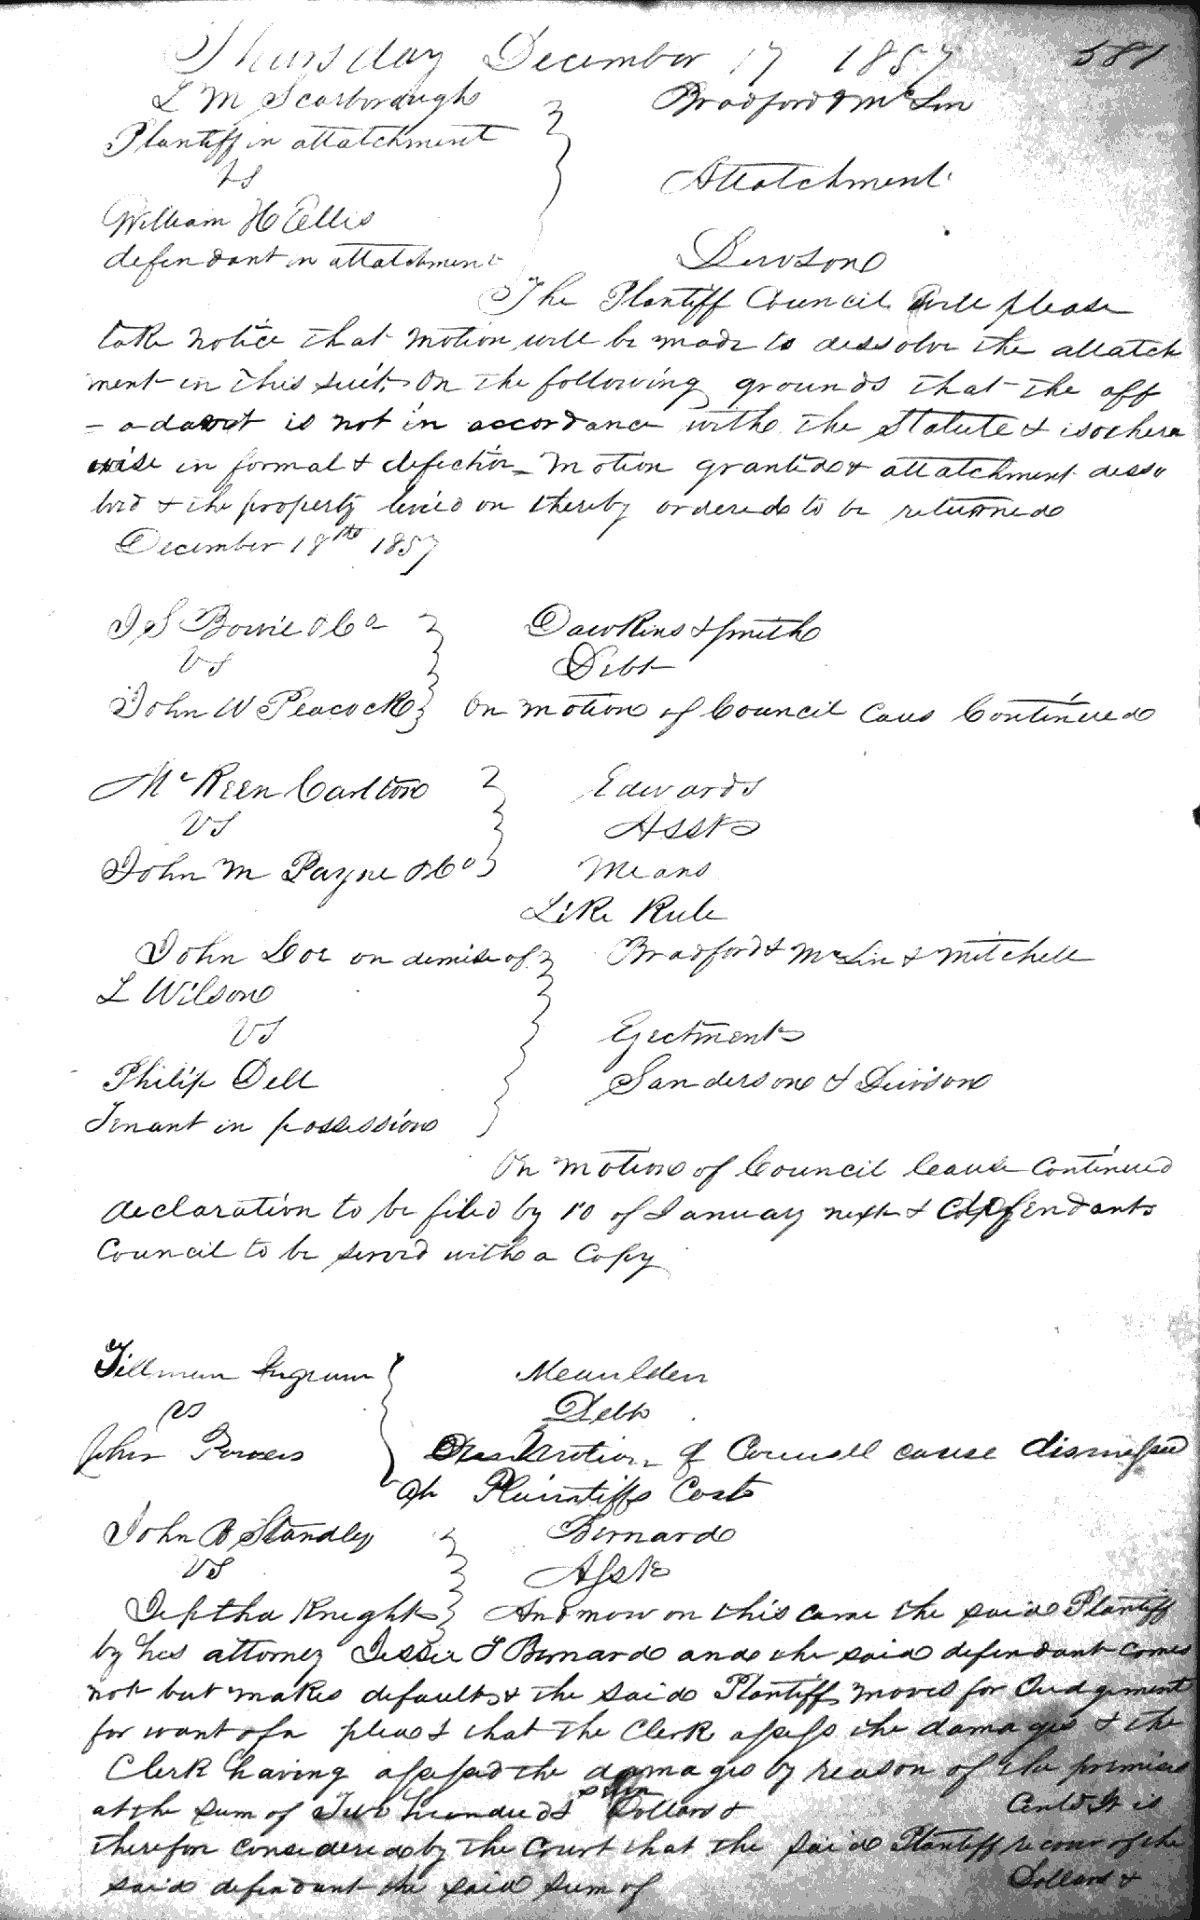 Thursday December 17 1857 581
L M Scarborough Bradford & McLin
Plantiff in attatchment
vs Attatchment
William H Ellis
defendant in attatchment Dewson
The Plantiff Council will please
take notice that motion will be made to dessolve the attatch
ment in this suit on the following grounds that the aff
- adavit is not in accordance with the Statute & is other
wise in formal & defective motion granted & attatchment disso
lvd & the property levied on thereby ordered to be returned
December 18th 1857
J S Bowie & Co Dawkins & Smith
vs Debt
John W Peacock On motion of Council Caus Continued
McKeen Carlton Edwards
vs Asst
John M Payne & Co Means
Like Rule
John Doe on demise of Bradford & McLin & Mitchell
L Wilson
vs Ejectment
Philip Dell Sanderson & Dewson
Tenant in possession
On motion of Council Cause Continued
declaration to be filed by 10 of January next & defendants
Council to be served with a Copy
Tillman Ingram
vs Debt
John Powers On Motion of Counsell cause dismissed
at Plaintiffs Cost
John B Standley Bernard
vs Asst
Jeptha Knight And now on this came the said Plantiff
by his attorney Jesse T Bernard and the said defendant comes
not but makes default & the said Plantiff moves for Judgement
for want of a plea & that the Clerk assess the damages & the
Clerk having assessed the damages by reason of the premises
at the sum of Two hundred & Dollars & Cents It is
therefor considered by the Court that the said Plantiff recover of the
said defendant the said sum of Dollars &